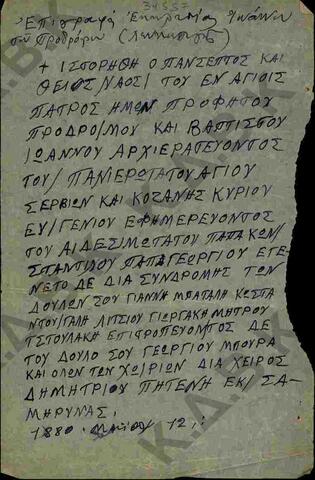 34557
Ἐπιγραφὴ Ἐκκλησίας Ἰωάννου
τοῦ Προδρόμου
+ ΙΣΤΟΡΗΘΗ Ο ΠΑΝΣΕΠΤΟΣ ΚΑΙ
ΘΕΙΟΣ/ΝΑΟΣ/ ΤΟΥ ΕΝ ΑΓΙΟΙΣ
ΠΑΤΡΟΣ ΗΜΩΝ ΠΡΟΦΗΤΟΥ
ΠΡΟΔΡΟ/ΜΟΥ ΚΑΙ ΒΑΠΤΙΣΤΟΥ
ΙΩΑΝΝΟΥ ΑΡΧΙΕΡΑΤΕΥΟΝΤΟΣ
ΤΟΥ/ ΠΑΝΙΕΡΩΤΑΤΟΥ ΑΓΙΟΥ
ΣΕΡΒΙΩΝ ΚΑΙ ΚΟΖΑΝΗΣ ΚΥΡΙΟΥ
ΕΥ/ΓΕΝΙΟΥ ΕΦΗΜΕΡΕΥΟΝΤΟΣ
ΤΟΥ ΑΙΔΕΣΙΜΩΤΑΤΟΥ ΠΑΠΑ ΚΩΝ/
ΣΤΑΝΤΙΝΟΥ ΠΑΠΑΓΕΩΡΓΙΟΥ ΕΓΕ
ΝΕΤΟ ΔΕ ΔΙΑ ΣΥΝΔΡΟΜΗΣ ΤΩΝ
ΔΟΥΛΩΝ ΣΟΥ ΓΙΑΝΝΗ ΜΠΑΤΑΛΗ ΚΩΣΤΑ
ΝΤΟΥ/ΓΑΛΗ ΛΙΤΣΙΟΥ ΓΙΩΡΓΑΚΗ ΜΗΤΡΟΥ
ΤΣΤΟΥΛΑΚΗ ΕΠΙΤΡΟΠΕΥΟΝΤΟΣ ΔΕ
ΤΟΥ ΔΟΥΛΟ ΣΟΥ ΓΕΩΡΓΙΟΥ ΜΠΟΥΡΑ
ΚΑΙ ΟΛΩΝ ΤΩΝ ΧΩ/ΡΙΩΝ ΔΙΑ ΧΕΙΡΟΣ
ΔΗΜΗΤΡΙΟΥ ΠΗΤΕΝΗ ΕΚ/ ΣΑ-
ΜΗΡΥΝΑΣ.
1880 Μαΐου 12